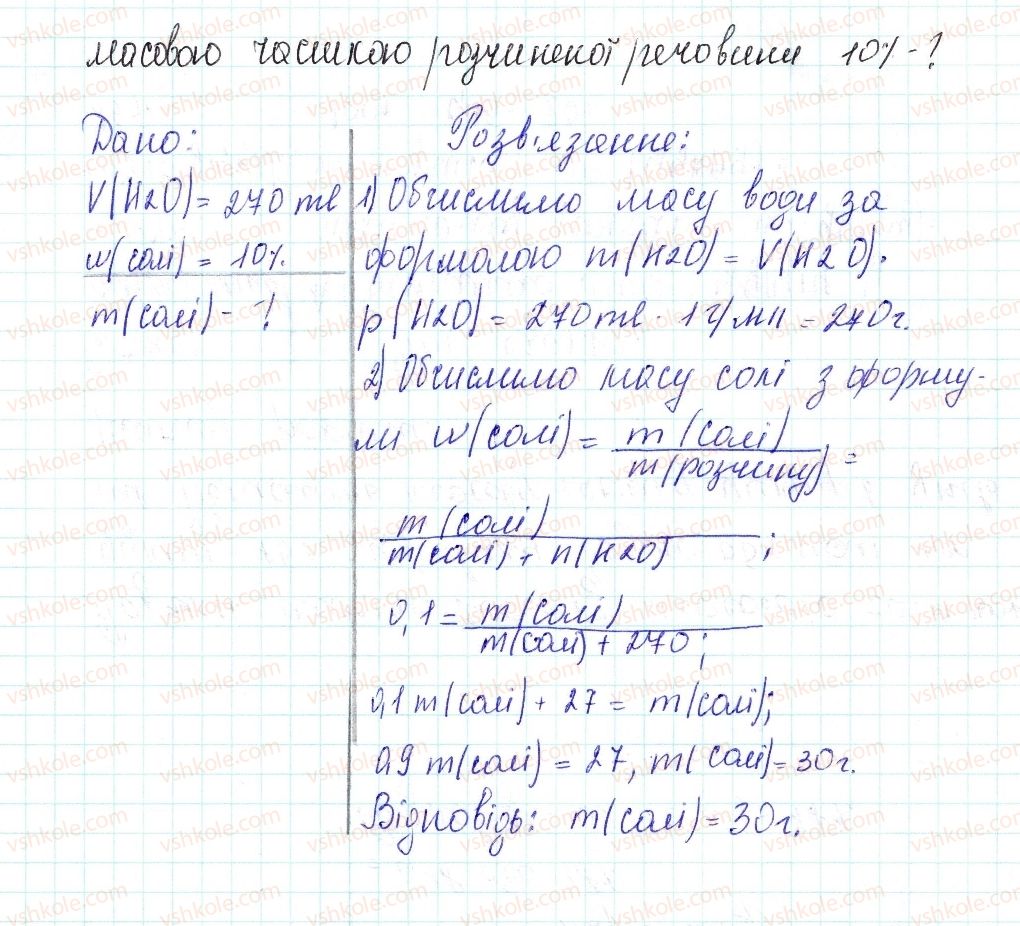 масовою часткою розчиненої речовини 10% - ?
Дано:
V(H2O) = 270 ml
w(солі) = 10%.
m(солі) - ?
Розв'язання:
1) Обчислимо масу води за
формолою m(H2O) = V(H2O) ·
p(H2O) = 270 ml · 1 г/мл = 270 г.
2) Обчислимо масу солі з форму-
ли w(солі) = m(солі) / m(розчину) =
m(солі) / m(солі) + n(H2O) ;
0,1 = m(солі) / m(солі) + 270 ;
0,1 m(солі) + 27 = m(солі);
0,9 m(солі) = 27, m(солі) = 30 г.
Відповідь: m(солі) = 30 г.